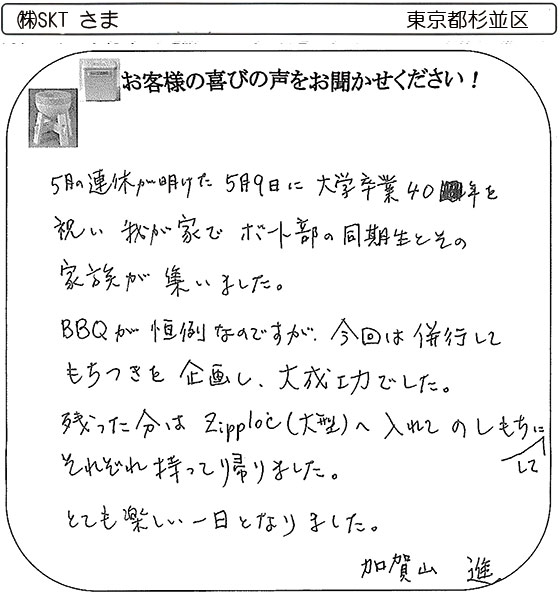 ㈱SKT さま
東京都杉並区
お客様の喜びの声をお聞かせください！
5月の連休が明けた 5月9日に 大学卒業40年を
祝い 我が家で ボート部の同期生とその
家族が 集いました。
BBQが 恒例なのですが、今回は 併行して
もちつきを 企画し、大成功でした。
残った分は Ziploc(大型)へ 入れて のしもちに
して
それぞれ 持って帰りました。
とても楽しい一日となりました。
加賀山 進